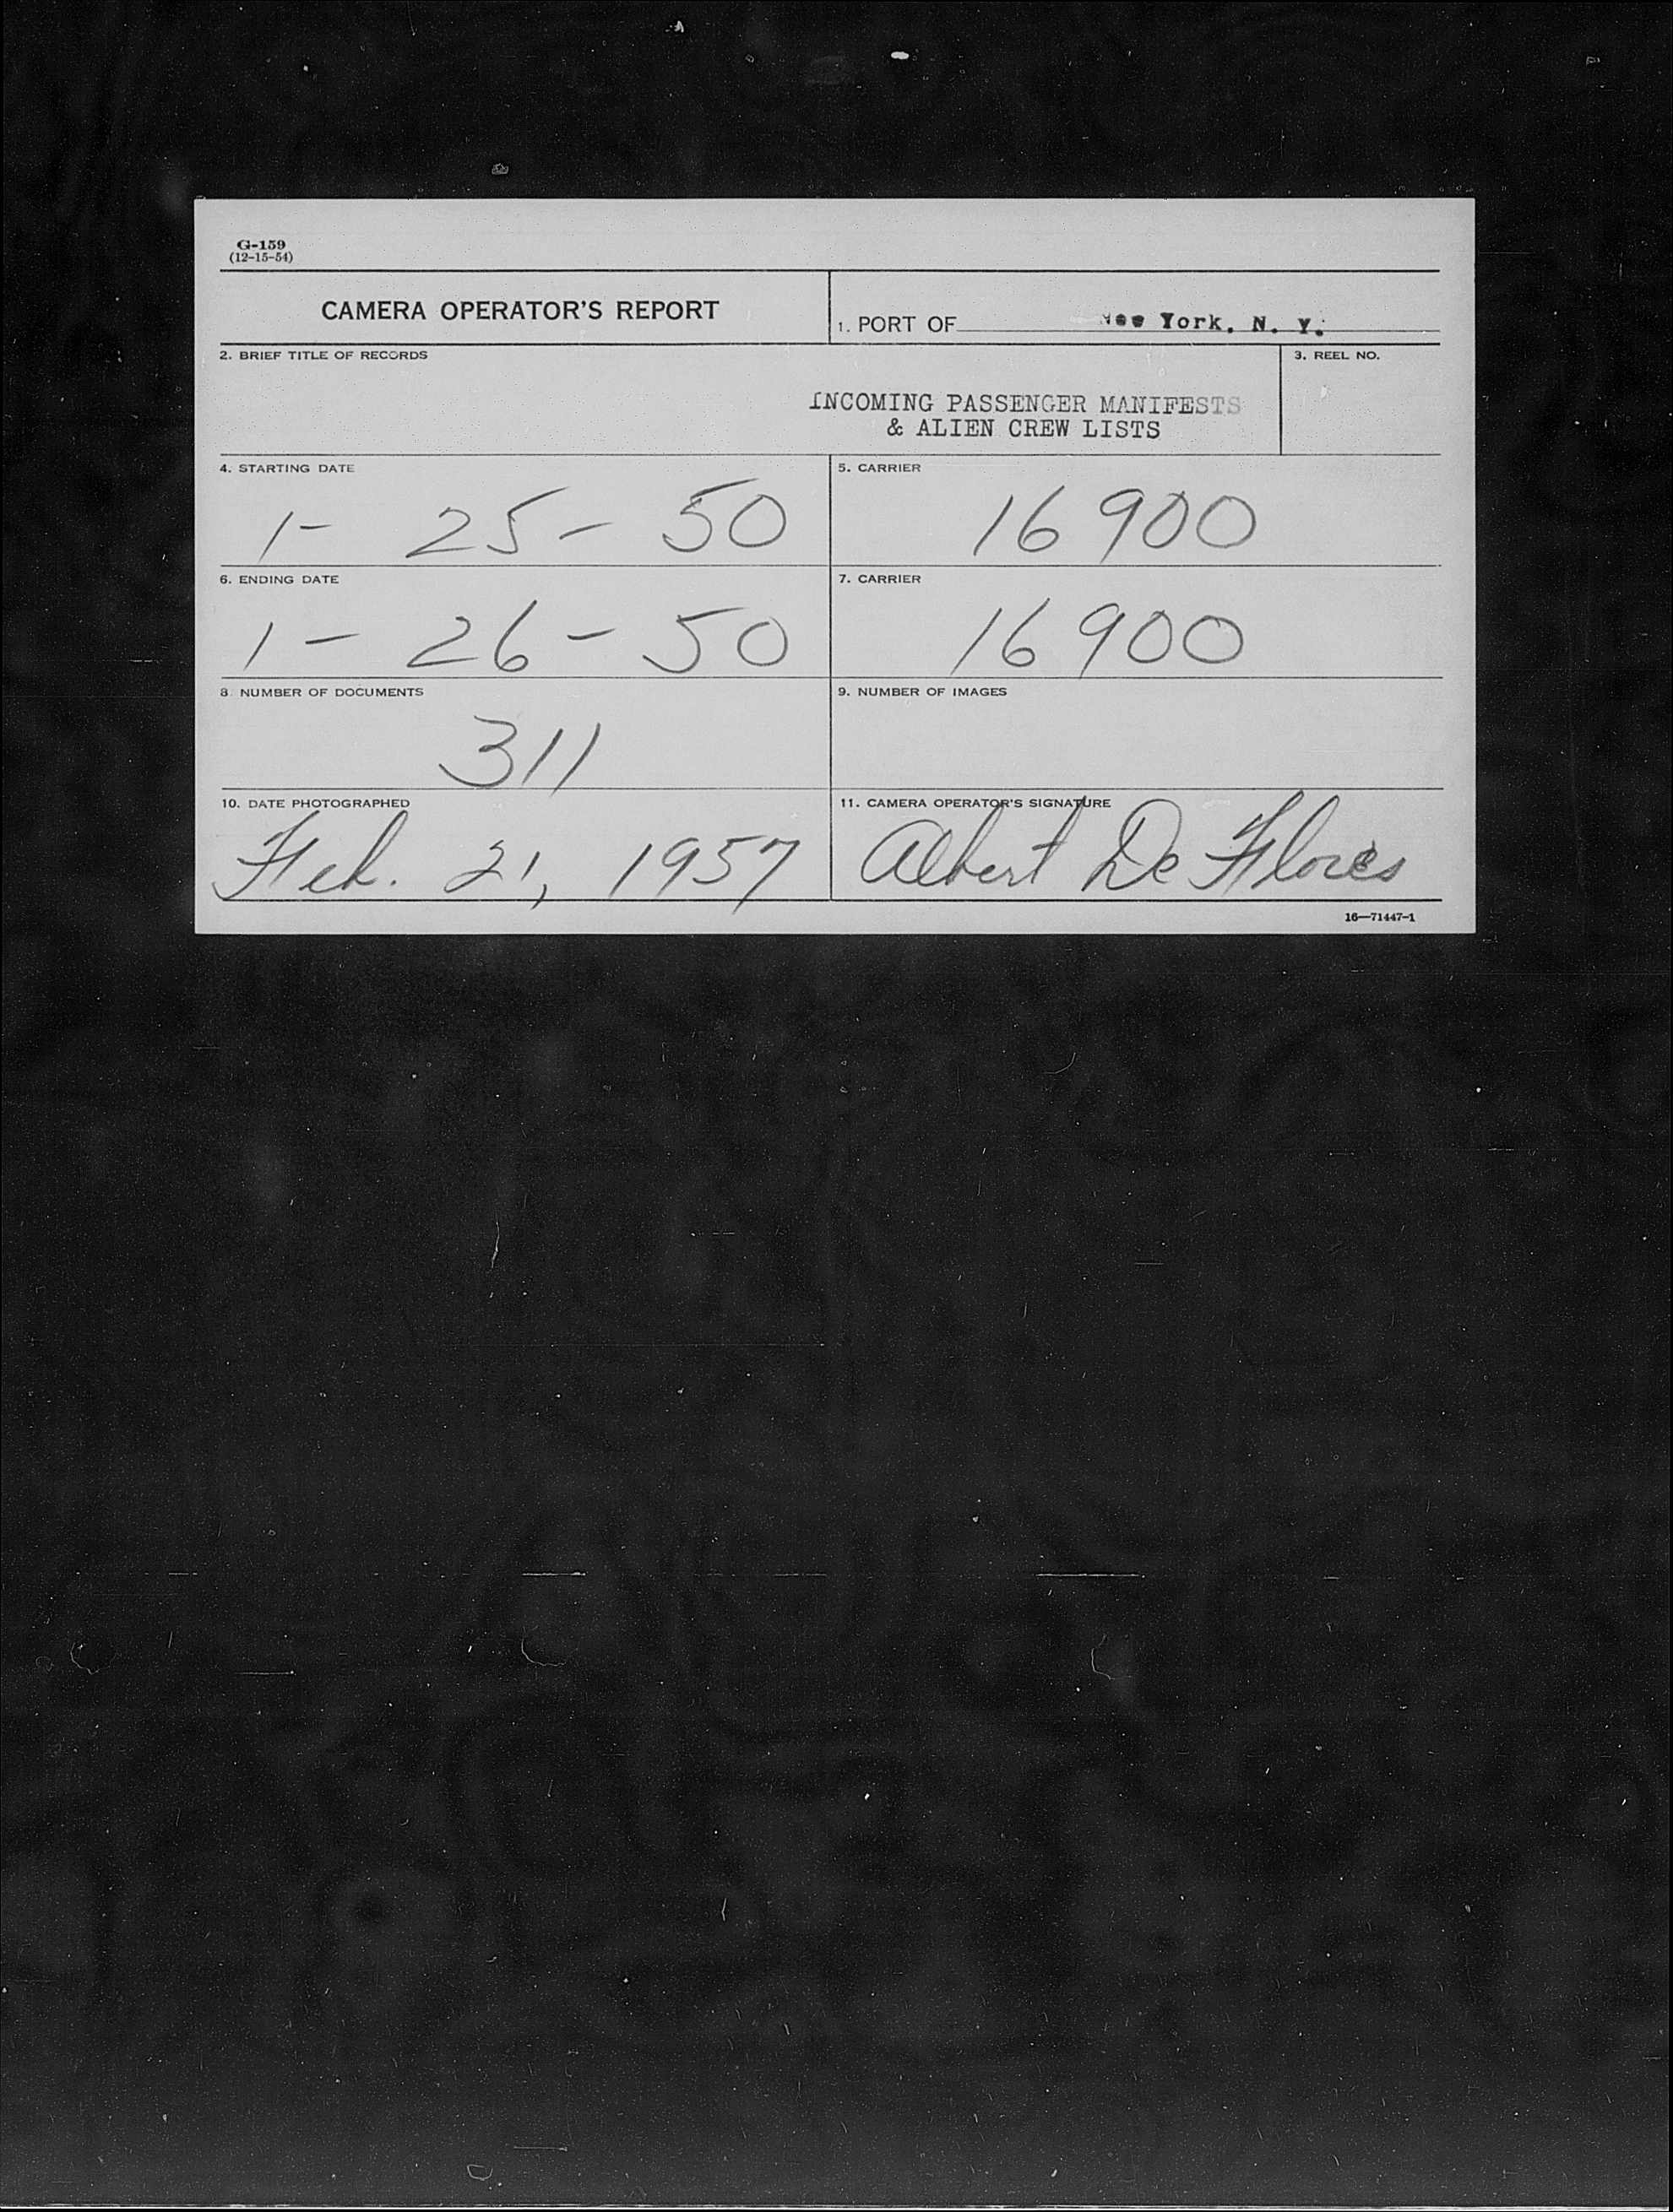 G-159
(12-15-54)
CAMERA OPERATOR'S REPORT
1. PORT OF New York, N. Y.
2. BRIEF TITLE OF RECORDS
3. REEL NO.
INCOMING PASSENGER MANIFESTS
& ALIEN CREW LISTS
4. STARTING DATE
1- 25- 50
5. CARRIER
16900
6. ENDING DATE
1- 26- 50
7. CARRIER
16900
8. NUMBER OF DOCUMENTS
311
9. NUMBER OF IMAGES
10. DATE PHOTOGRAPHED
Feb. 21, 1957
11. CAMERA OPERATOR'S SIGNATURE
Albert De Flores
16—71447-1